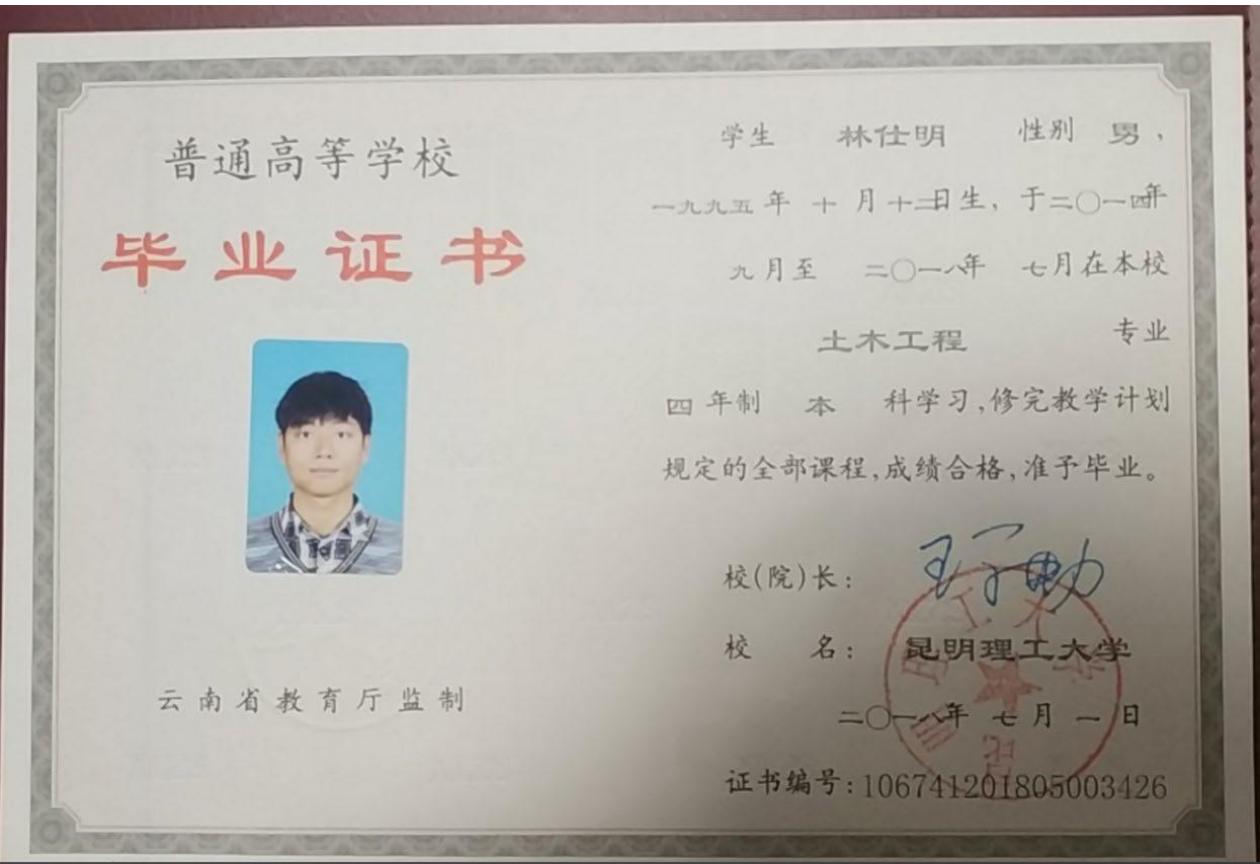 普通高等学校
毕业证书
云南省教育厅监制
学生 林仕明 性别 男，
一九九五年 十月十二日生，于二〇一四年
九月至 二〇一八年 七月在本校
土木工程 专业
四年制 本 科学习，修完教学计划
规定的全部课程，成绩合格，准予毕业。
校（院）长：
校 名：昆明理工大学
二〇一八年 七月 一日
证书编号：106741201805003426